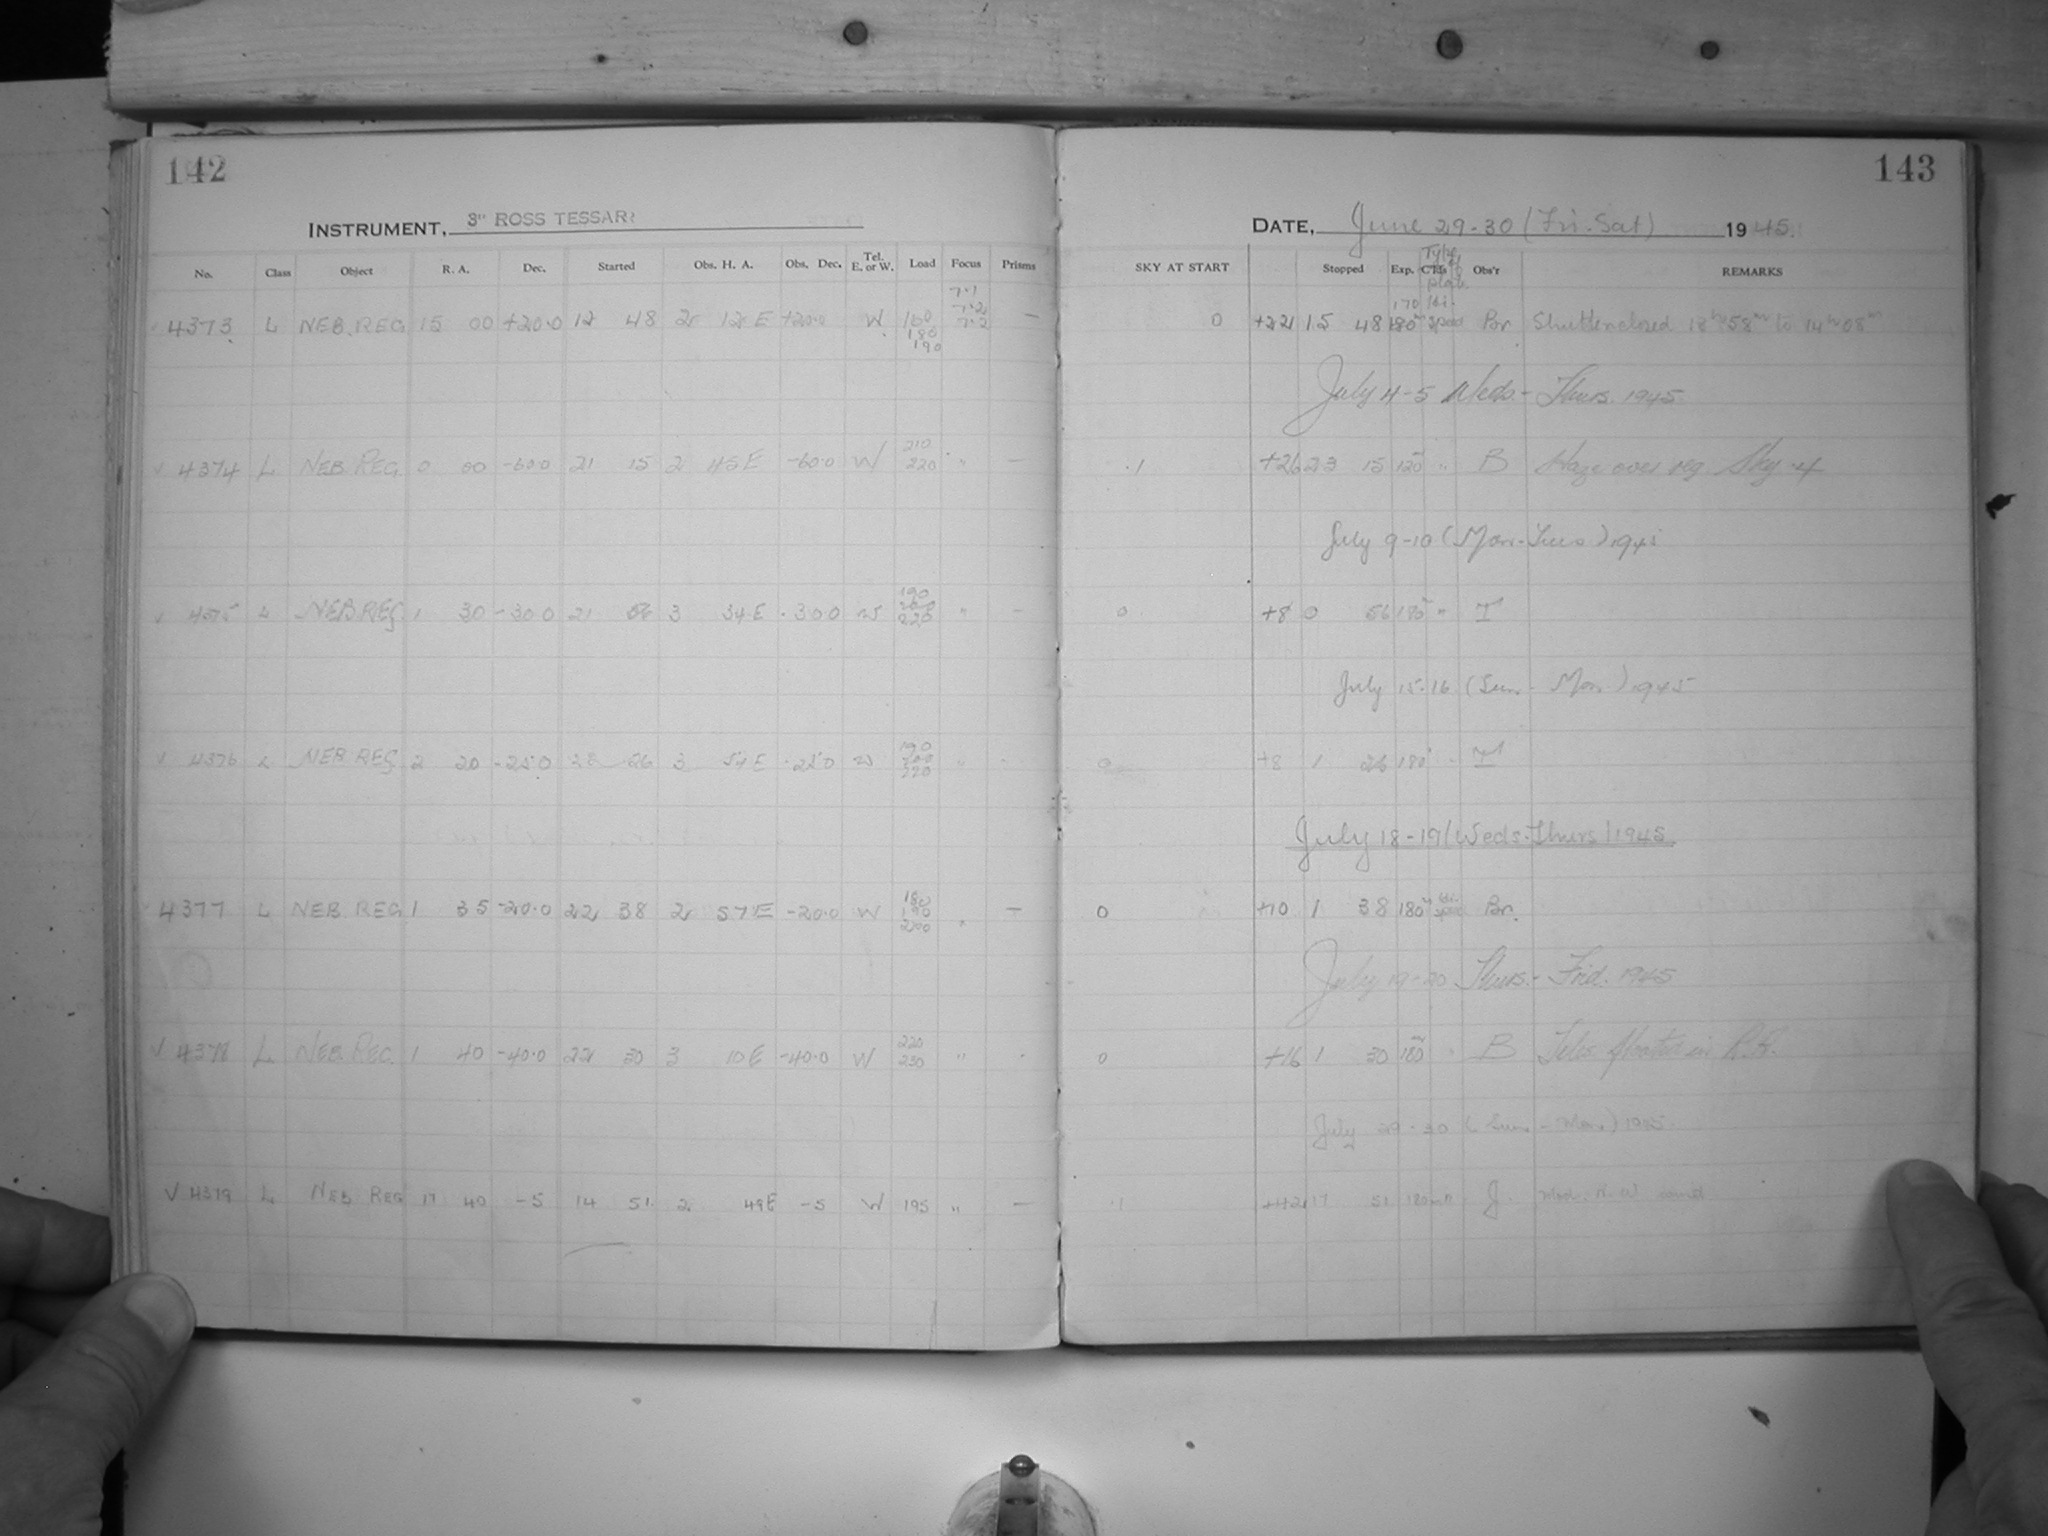 142
INSTRUMENT, 3" ROSS TESSAR
No. Class Object R. A. Dec. Started Obs. H. A. Obs. Dec. Tel. E. or W. Load Focus Prisms
4373 L NEB. REG 15 00 +20.0 12 48 2 12 E +20.0 W 160 180 190 7.1 7.2 7.2 —
✓ 4374 L NEB REG. 0 00 -60.0 21 15 2 45 E -60.0 W 210 220 " —
✓ 4375 L NEB REG 1 30 -30 0 21 56 3 34 E -30 0 W 190 200 220 " —
✓ 4376 L NEB REG 2 20 -25 0 22 26 3 54 E -25 0 W 190 200 220 "
4377 L NEB REG 1 35 -20.0 22 38 2 57 E -20.0 W 180 190 200 " —
✓ 4378 L NEB. REG. 1 40 -40.0 22 30 3 10 E -40.0 W 220 230 "
✓ 4379 L NEB REG 17 40 -5 14 51 2 49 E -5 W 195 " —
143
DATE, June 29-30 (Fri.-Sat) 1945.
SKY AT START Stopped Exp. Type of plate Obs'r REMARKS
0 +22 15 48 170 180m Spec Par Shutter closed 13h 58m to 14h 08m
July 4-5 Weds.-Thurs. 1945
.1 +26 23 15 120m " B Haze over reg. Sky .4
July 9-10 (Mon-Tues) 1945
0 +8 0 56 180m " T
July 15-16 (Sun - Mon) 1945
0 +8 1 26 180 " T
July 18-19 (Weds-Thurs) 1945
0 +10 1 38 180m Par.
July 19-20 Thurs.-Frid. 1945
0 +16 1 30 180m " B in R.A.
July 29-30 (Sun-Mon) 1945
.1 +42 17 51 180m J. Mod. N.W wind